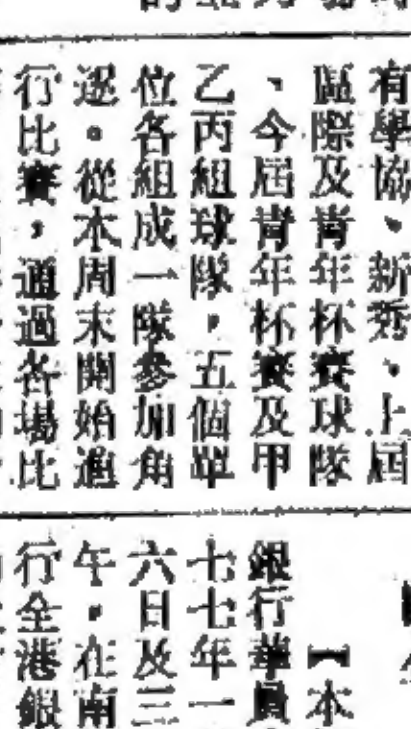 有學協、新秀、上屆
區際及青年杯賽球隊
、今屆青年杯賽及甲
乙丙組球隊,五個單
位各組成一隊參加角
逐。從本周末開始進
行比賽,通過各場比
【本
銀行華員
七七年一
六日及三
午,在南
行全港銀